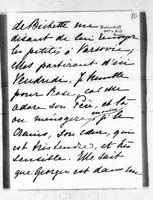 80
de Bichette me
disant de lui renvoyer
les petites à Varsovie,
elles partiront d'ici
Vendredi. Je tremble
pour Rose, car elle
adore son Père, et là
on ménagera moins p. le
son cœur, qui
est très tendre, et très
sensible. Elle sait
que Georges est dans un